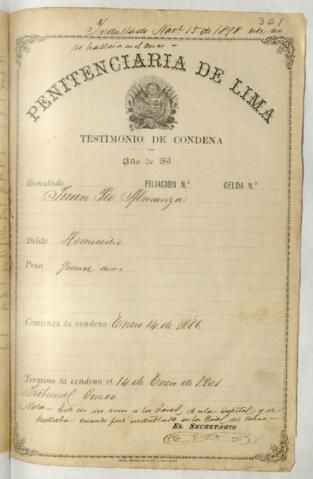 301
Indultado Nov. 15 de 1898 este reo
se hallaba en el Cuzco
PENITENCIARIA DE LIMA
TESTIMONIO DE CONDENA
Año de 189
Rematado FILIACION N.º CELDA N.º
Juan Pio Almanza
Delito Homicidio
Pena Quince años
Comienza la condena Enero 14 de 1886
Termina la condena el 14 de Enio de 1901
Tribunal Cuzco
Nota Este reo no vino a la Carcel de la Capital, y se
hallaba cuando fué indultado en la Cárcel del Cuzco
EL SECRETARIO